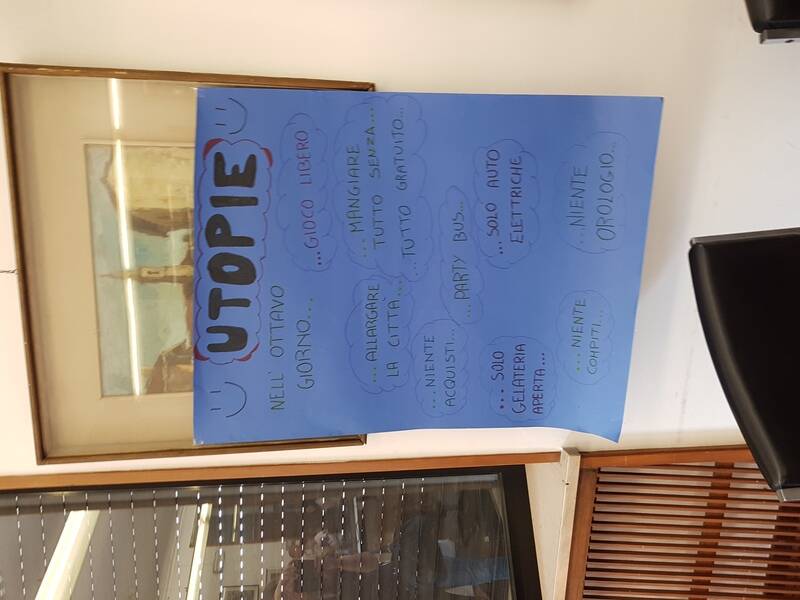 UTOPIE
NELL' OTTAVO
GIORNO...
...GIOCO LIBERO
...ALLARGARE
LA CITTÀ...
...MANGIARE
TUTTO SENZA...
...TUTTO GRATUITO...
...NIENTE
ACQUISTI...
...PARTY BUS...
...SOLO
GELATERIA
APERTA...
...SOLO AUTO
ELETTRICHE
...NIENTE
COMPITI...
...NIENTE
OROLOGIO...